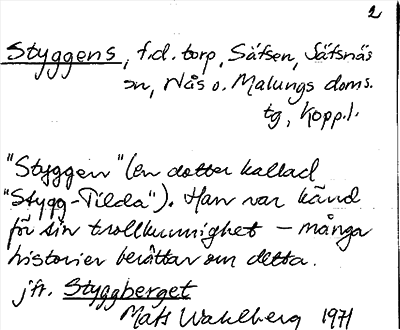 2
Styggens, f.d. torp, Säfsen, Säfsnäs
sn, Nås o. Malungs doms.
tg, Kopp.l.
"Styggen" (en dotter kallad
"Stygg-Tilda"). Han var känd
för sin trollkunnighet – många
historier berättar om detta.
jfr. Styggberget
Mats Wahlberg 1971